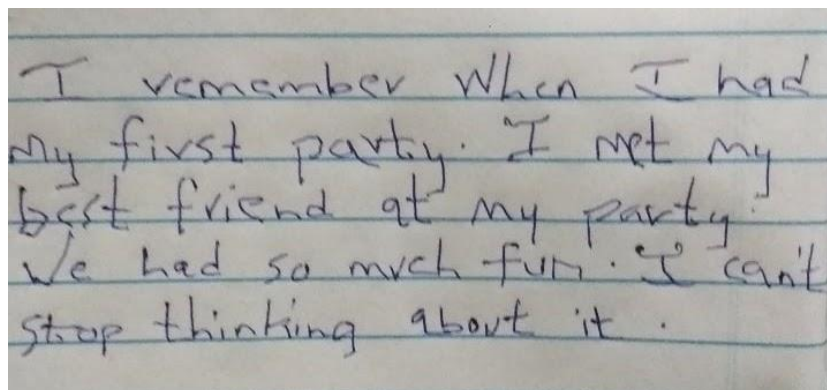 I remember when I had
my first party. I met my
best friend at my party.
We had so much fun. I can't
stop thinking about it.